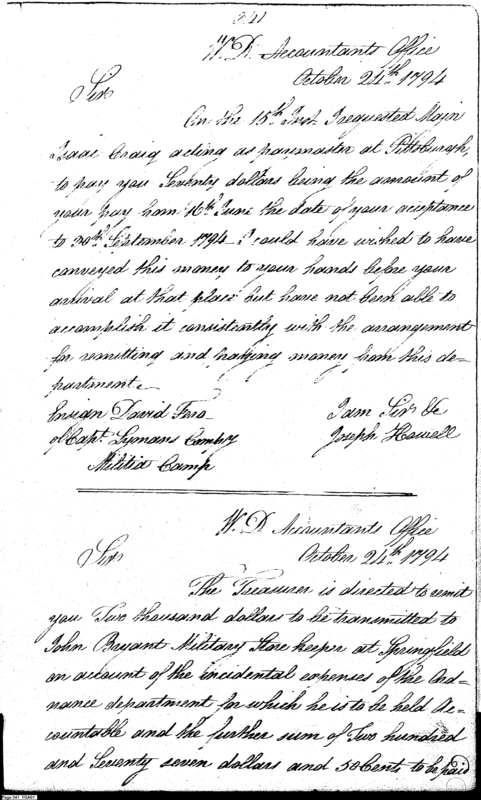 241
W. D. Accountants Office
October 24th 1794
Sir
On the 15th Inst. I requested Major
Isaac Craig acting as paymaster at Pittsburgh,
to pay you Seventy dollars being the amount of
your pay from 16th June the date of your acceptance
to 30th September 1794 – I could have wished to have
conveyed this money to your hands before your
arrival at that place but have not been able to
accomplish it consistently with the arrangement
for remitting and paying money from this de-
partment.
Ensign David
I am Sir &c
of Capt. Lymans Compy
Joseph Howell
Militia Camp
W. D. Accountants Office
October 24th 1794
Sir
The Treasurer is directed to remit
you Two thousand dollars to be transmitted to
John Bryant Military Store keeper at Springfield
on account of the incidental expenses of the Ord-
nance department for which he is to be held Ac-
countable and the further sum of Two hundred
and Seventy seven dollars and 50 Cents to be paid